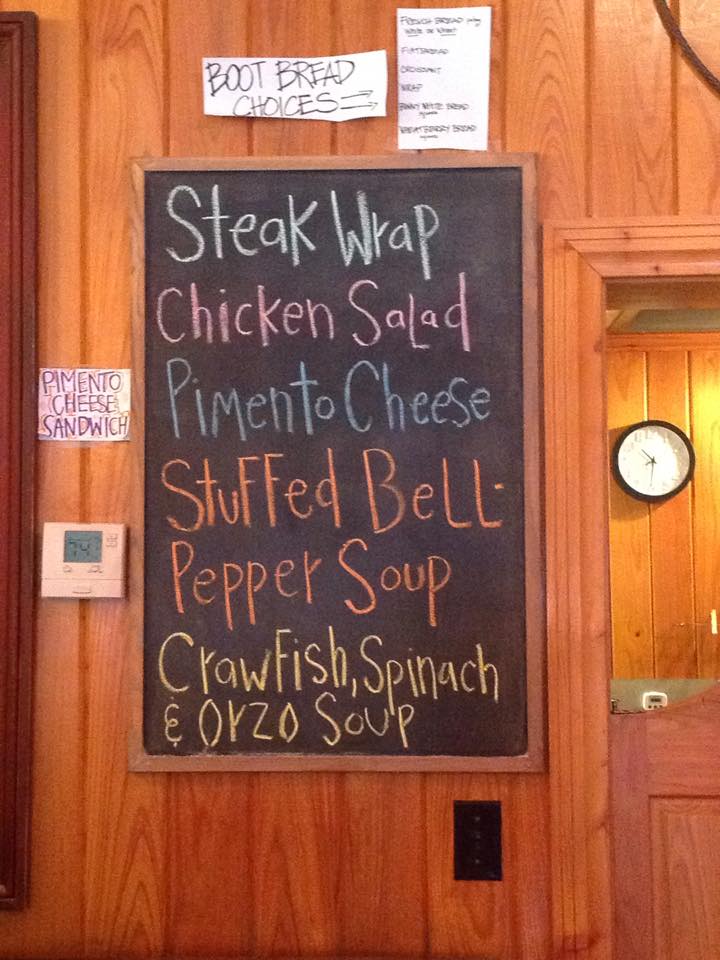 BOOT BREAD
CHOICES
FRENCH BREAD
White or Wheat
FLATBREAD
CROISSANT
WRAP
WHEATBERRY BREAD
Steak Wrap
Chicken Salad
Pimento Cheese
Stuffed Bell-
Pepper Soup
Crawfish, Spinach
& Orzo Soup
PIMENTO
CHEESE
SANDWICH